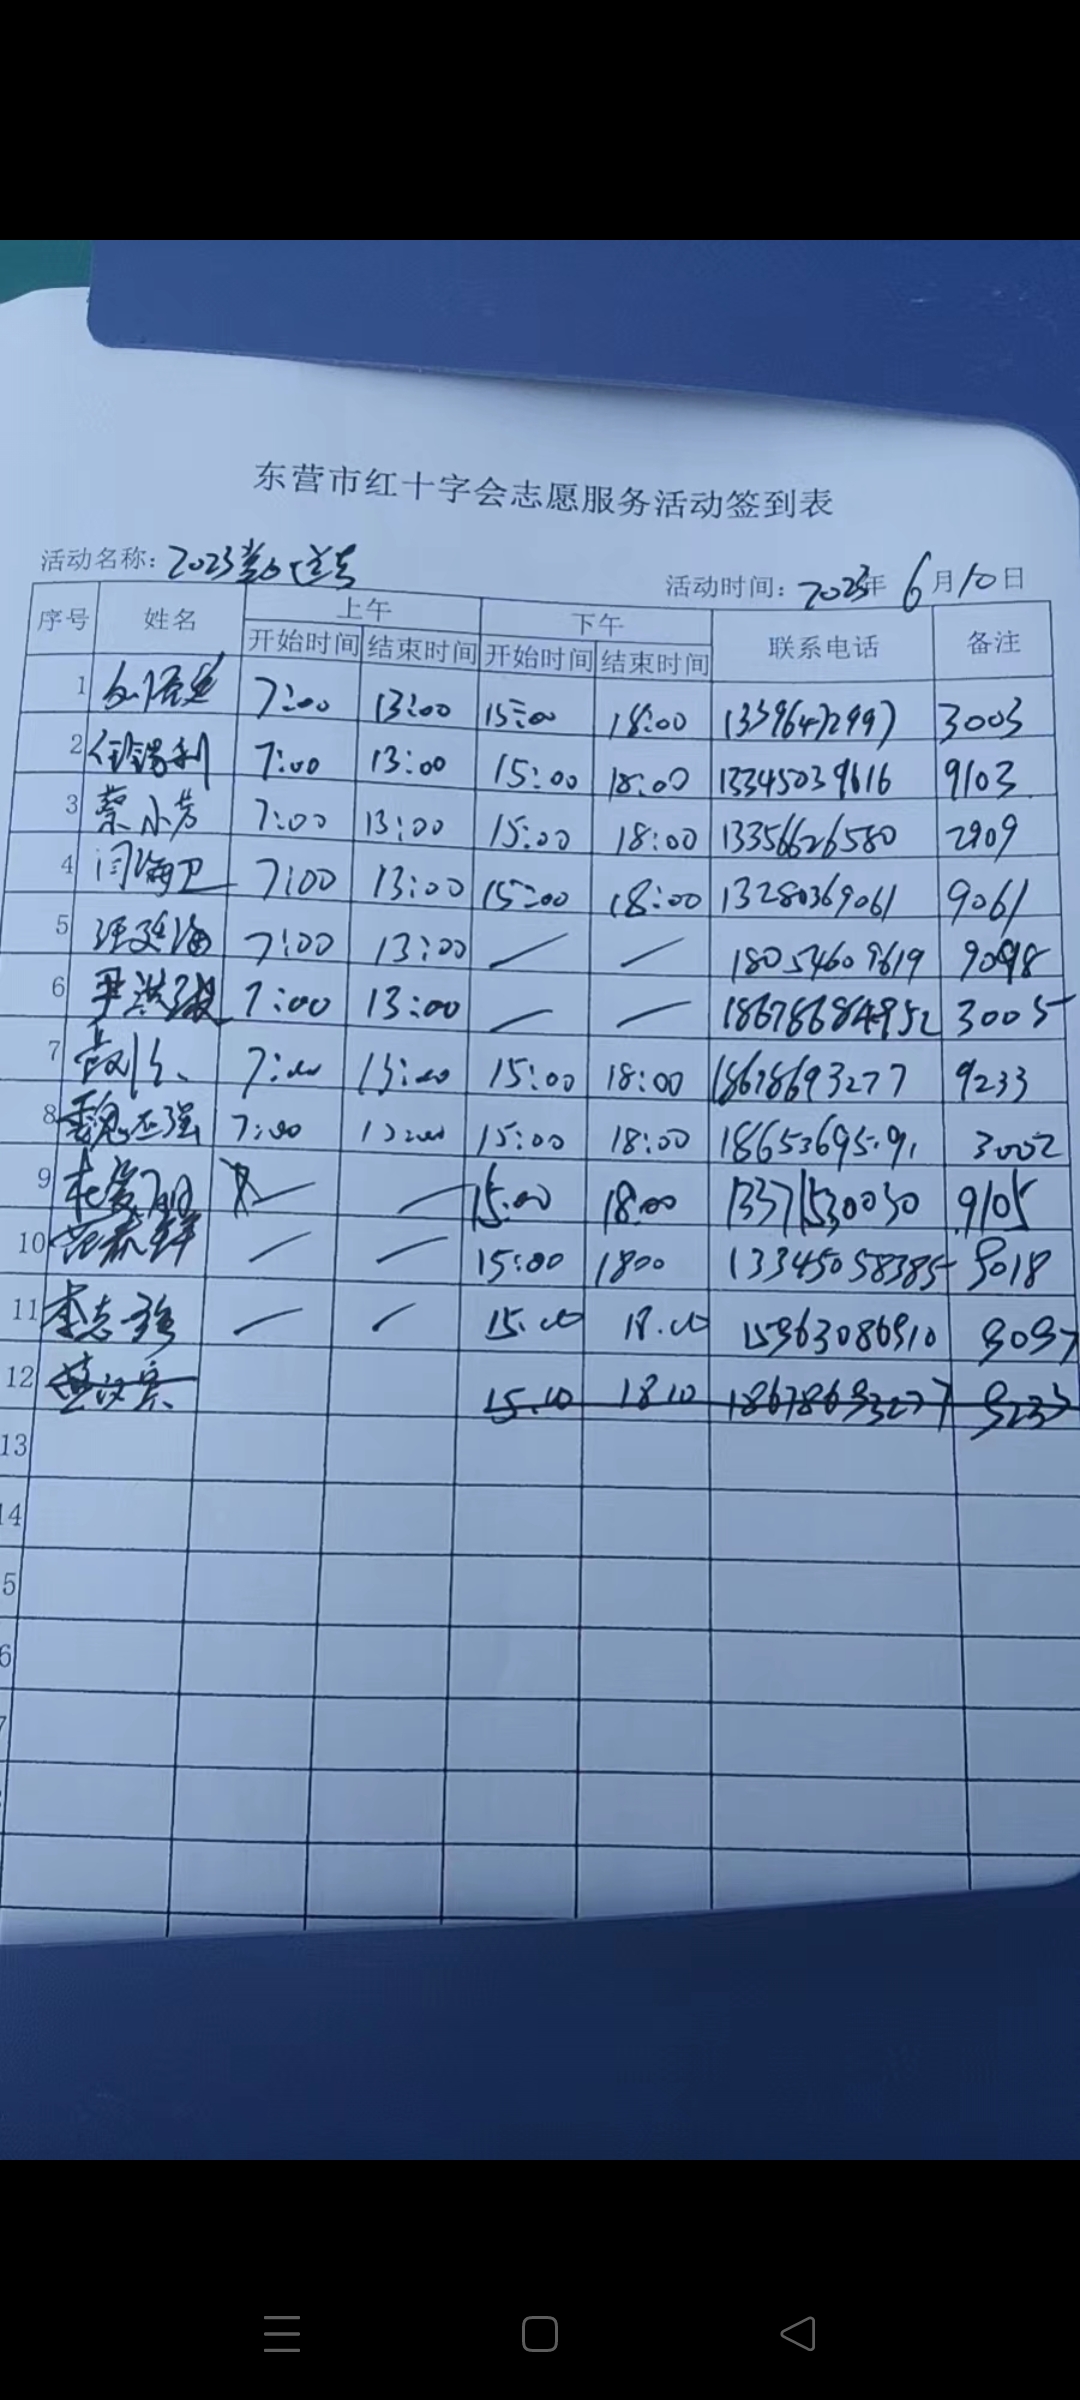 东营市红十字会志愿服务活动签到表
活动名称: 2023 活动时间: 2023年6月10日
序号 姓名 上午 下午 联系电话 备注
开始时间 结束时间 开始时间 结束时间
1 7:00 13:00 15:00 18:00 13396472997 3003
2 任锡利 7:00 13:00 15:00 18:00 13345039616 9103
3 蔡小芳 7:00 13:00 15:00 18:00 13356626580 2909
4 闫海卫 7:00 13:00 15:00 18:00 13280369061 9061
5 7:00 13:00 — — 18054609619 9098
6 尹洪 7:00 13:00 — — 3005
7 7:00 13:00 15:00 18:00 18678693277 9233
8 魏正强 7:00 13:00 15:00 18:00 3002
9 杜爱 — — 15:00 18:00 13371530030 9105
10 — — 15:00 1800 13345058385 9018
11 李志强 — — 15.00 18.00 15963086910 9097
12 15.10 18 10 18678693277 9233
13
14
5
6
7